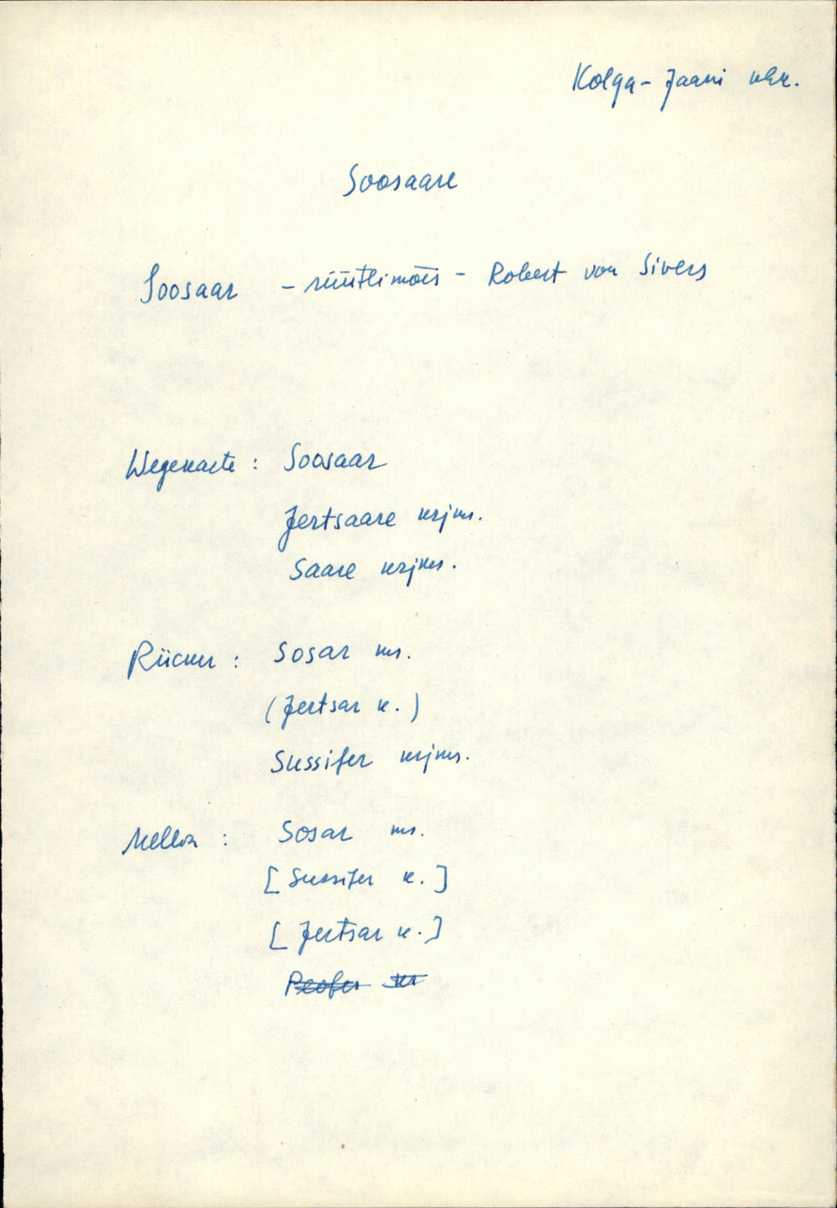 Kolga-Jaani khk.
Soosaare
Soosaar - rüütlimõis - Robert von Sivers
Wegekarte : Soosaar
Jertsaare krjms.
Saare krjms.
Rücker : Sosar ms.
(Jertsar k.)
Sussifer krjms.
Mellin : Sosar ms.
[Sussifer k.]
[Jertsar k.]